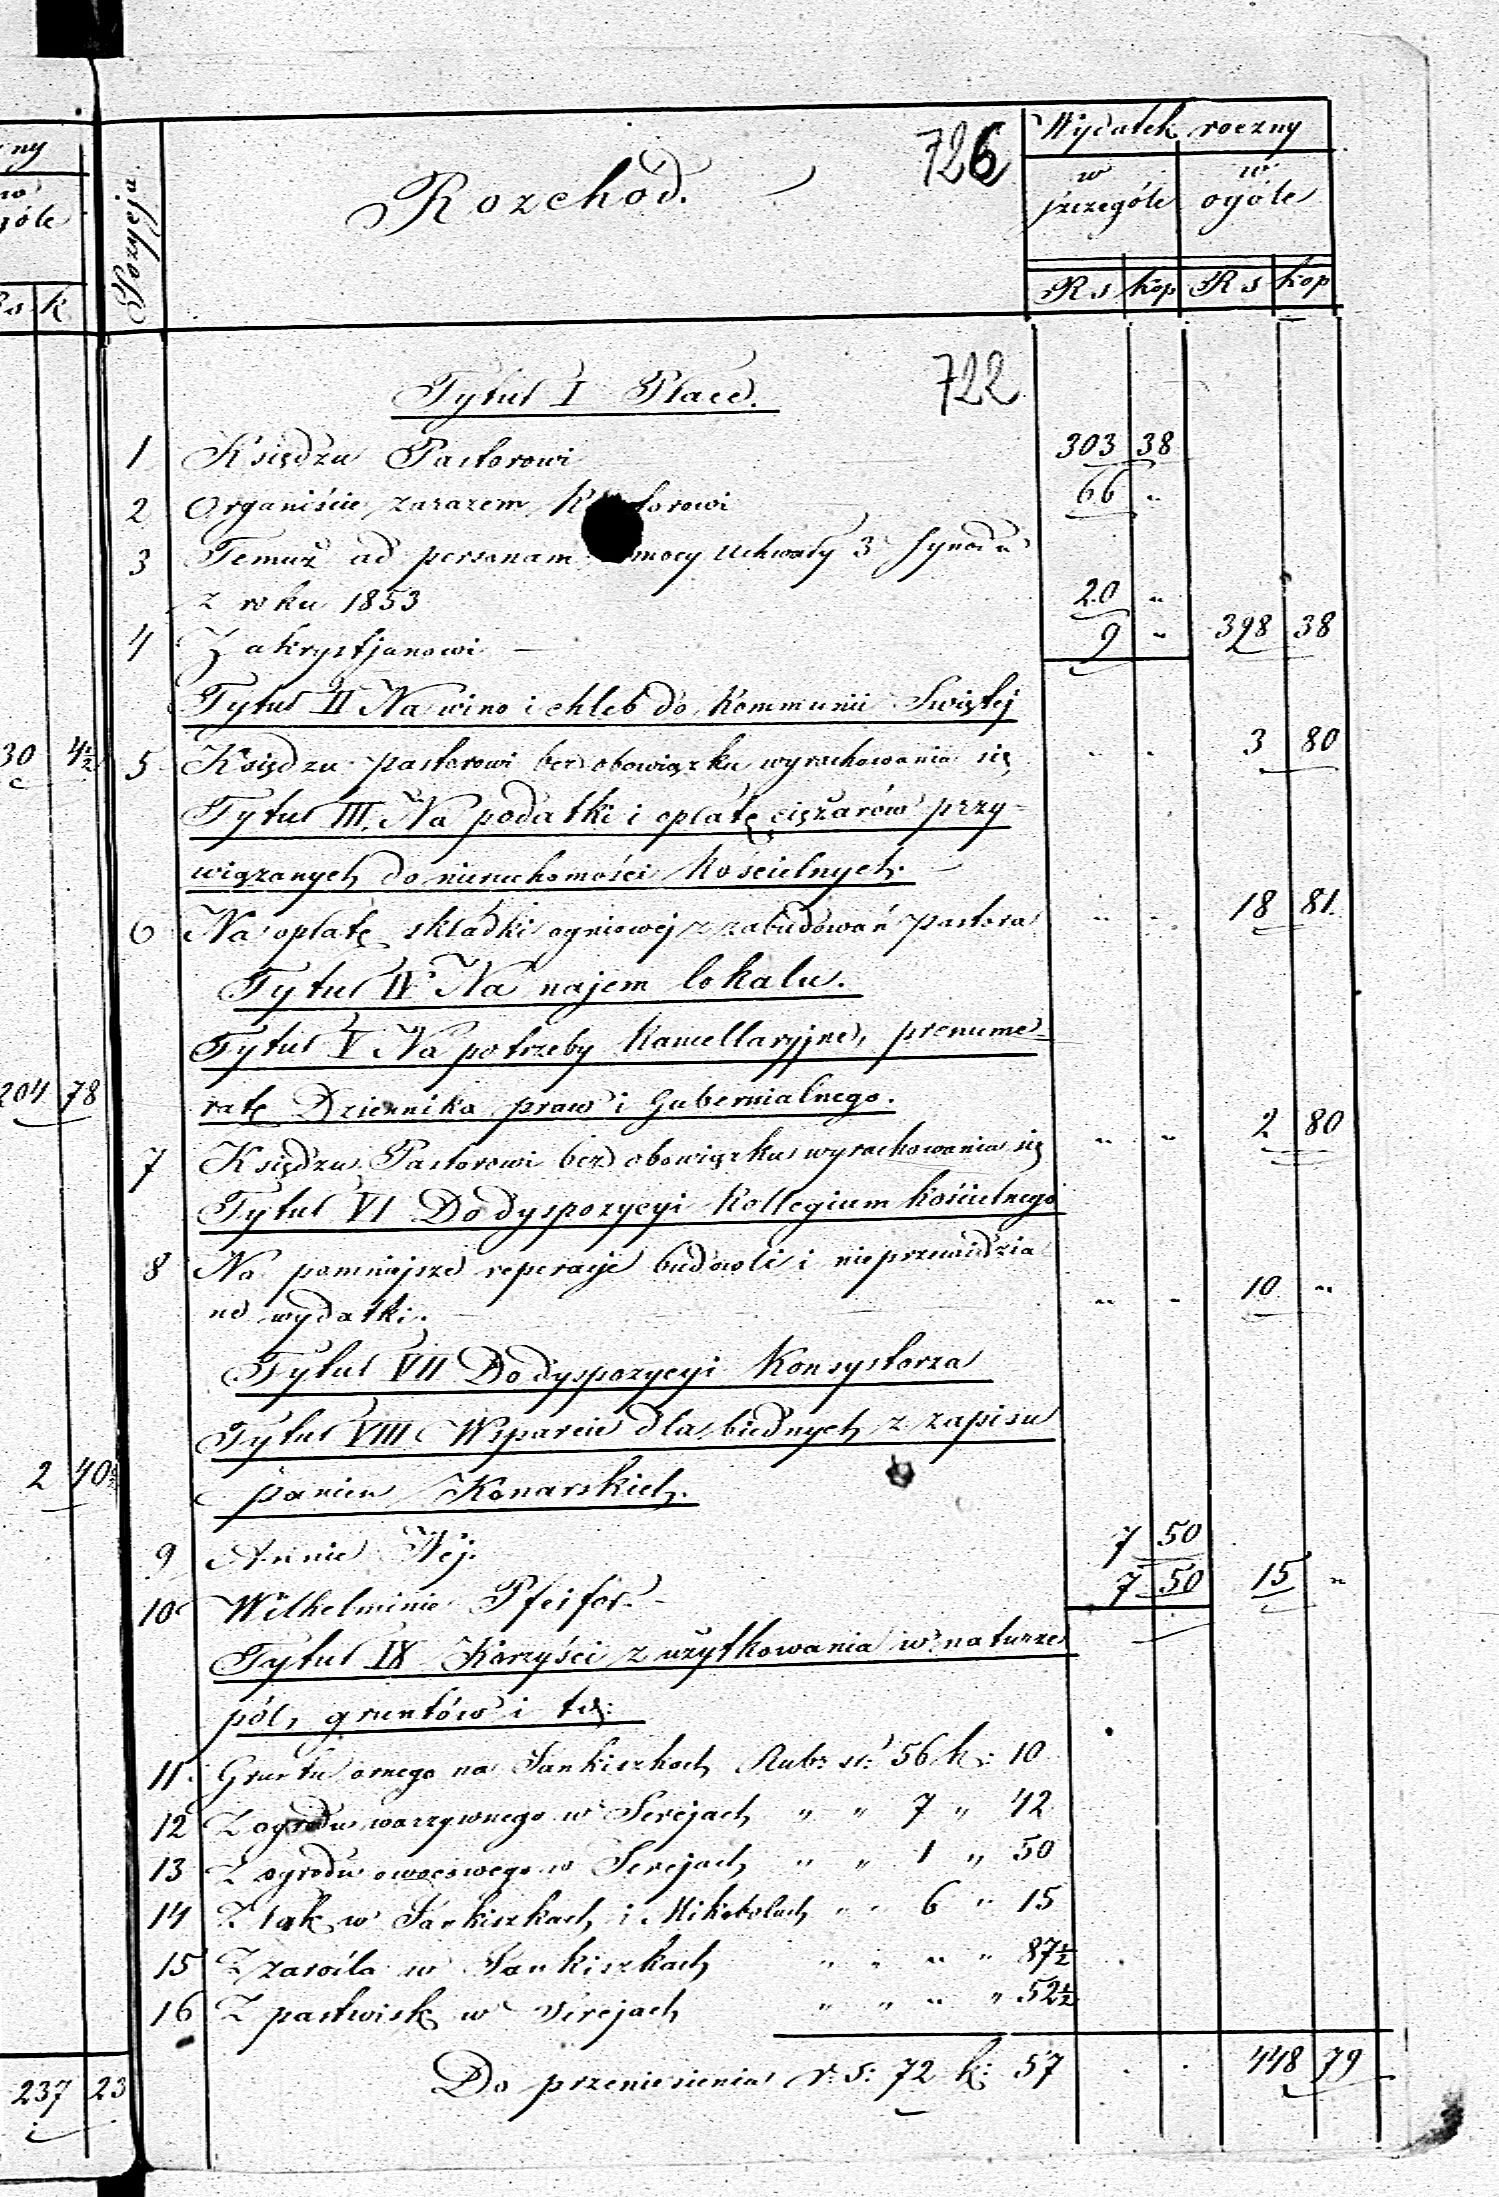 ny
góle
Rs k
30 4½
204 78
2 40½
237 23
Pozycja
Rozchód.
726
Wydatek roczny
w szczególe
w ogóle
Rs kop Rs kop
Tytuł I Płace.
722
1 Księdzu Pastorowi 303 38
2 Organiście zarazem K torowi 66 "
3 Temuż ad personam mocy uchwały 3 Synodu
z roku 1853 20 "
4 Zakrystjanowi 9 " 398 38
Tytuł II Na wino i chleb do Kommunii Swiętej
5 Księdzu pastorowi bez obowiązku wyrachowania się " " 3 80
Tytuł III. Na podatki i opłatę ciężarów przy-
wiązanych do nieruchomości Kościelnych.
6 Na opłatę składki ogniowej z zabudowań Pastora " " 18 81.
Tytuł IV Na najem lokalu.
Tytuł V Na potrzeby Kancellaryjne, prenume-
ratę Dziennika praw i Gubernialnego.
7 Księdzu Pastorowi bez obowiązku wyrachowania się " " 2 80
Tytuł VI Do dyspozycyi Kollegium Kościelnego
8 Na pomniejsze reperacje budowli i nieprzewidzia
ne wydatki. " " 10 "
Tytuł VII Do dyspozycyi Konsystorza
Tytuł VIII Wsparcie dla biednych z zapisu
panien Konarskich.
9 Annie Wej. 7 50
10 Wilhelminie Pfeifer 7 50 15 "
Tytuł IX Korzyści z użytkowania w naturze
pól, gruntów i t.d:
11. Gruntu ornego na Sankiszkach Rub: sr: 56 k: 10
12 Z ogrodu warzywnego w Serejach " " 7 " 42
13 Z ogrodu owocowego w Serejach " " 1 " 50
14 Z łąk w Sankiszkach i Mikabalach " " 6 " 15
15 Z zarośla w Sankiszkach " " " " 87½
16 Z pastwisk w Serejach " " " " 52½
Do przeniesienia r: s: 72 k: 57 . . 448 79